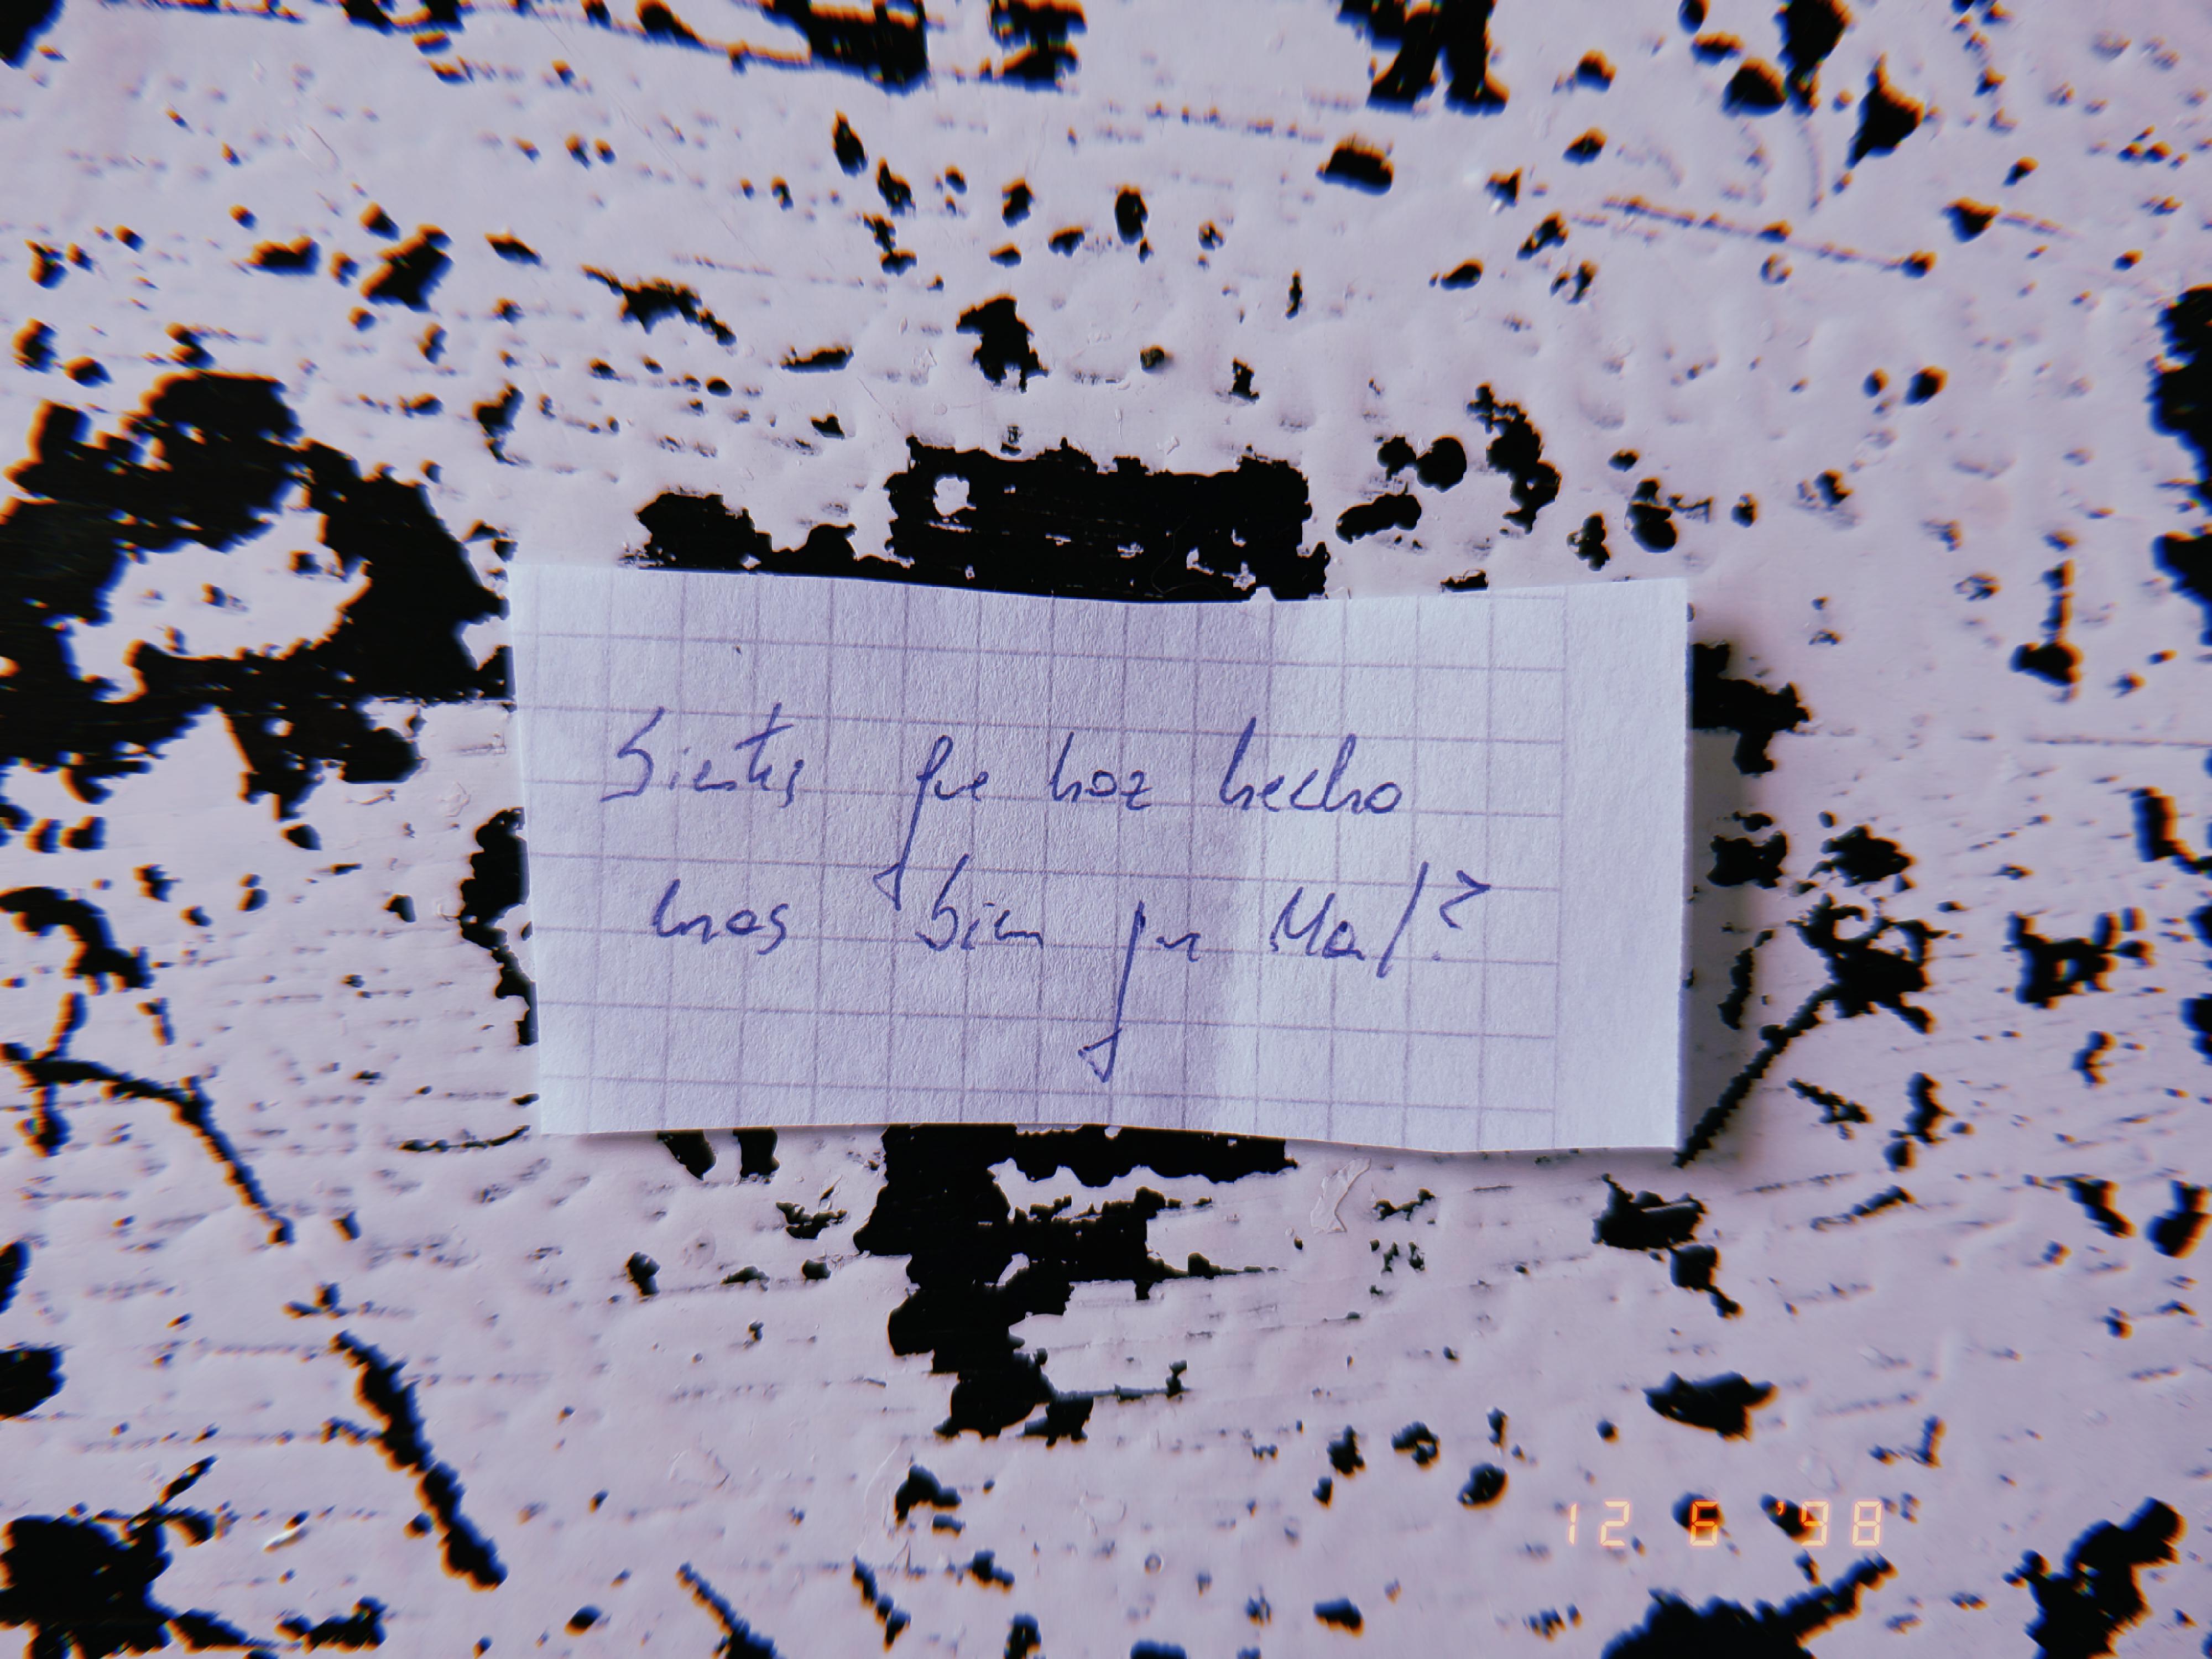 Sientes que haz hecho
mas bien que Mal?
12 6 '98